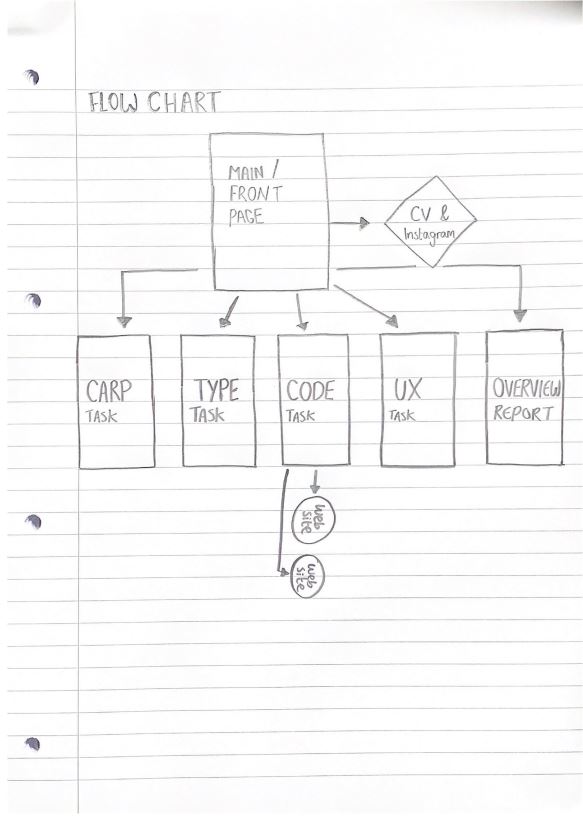 FLOW CHART
MAIN /
FRONT
PAGE
CV &
Instagram
CARP
TASK
TYPE
TASK
CODE
TASK
UX
TASK
OVERVIEW
REPORT
Web
site
Web
site